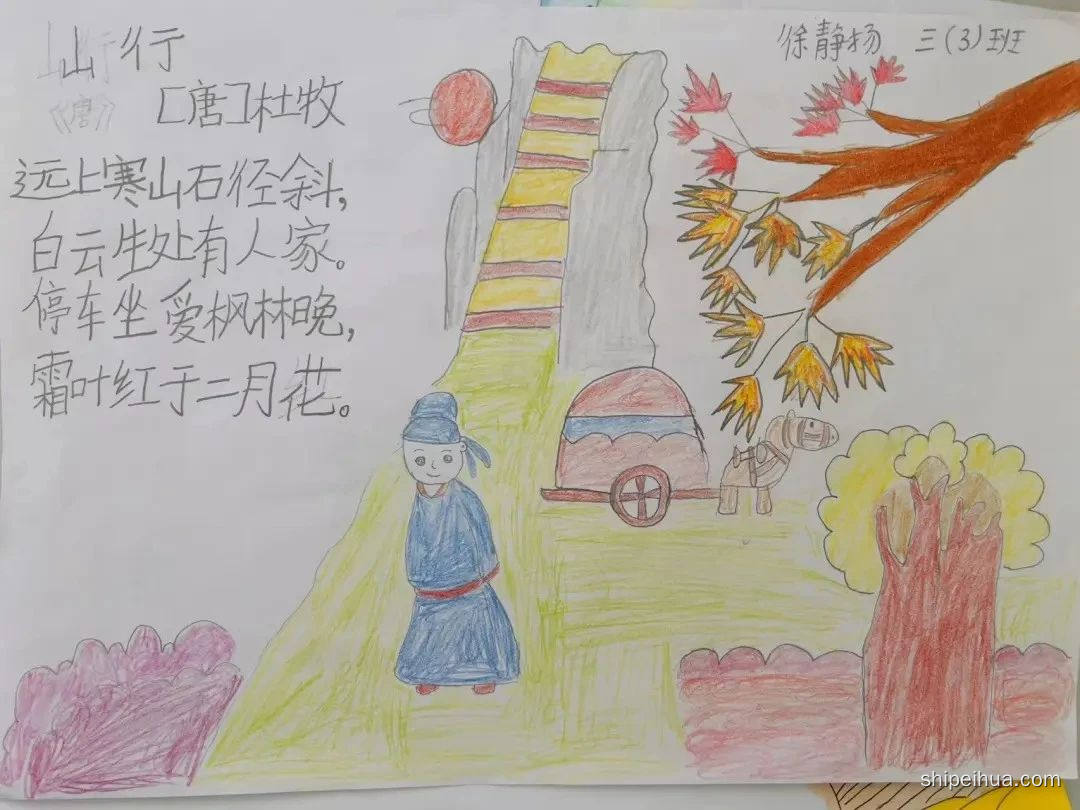 山行
徐静扬 三(3)班
《唐》
[唐]杜牧
远上寒山石径斜,
白云生处有人家。
停车坐爱枫林晚,
霜叶红于二月花。
shipeihua.com